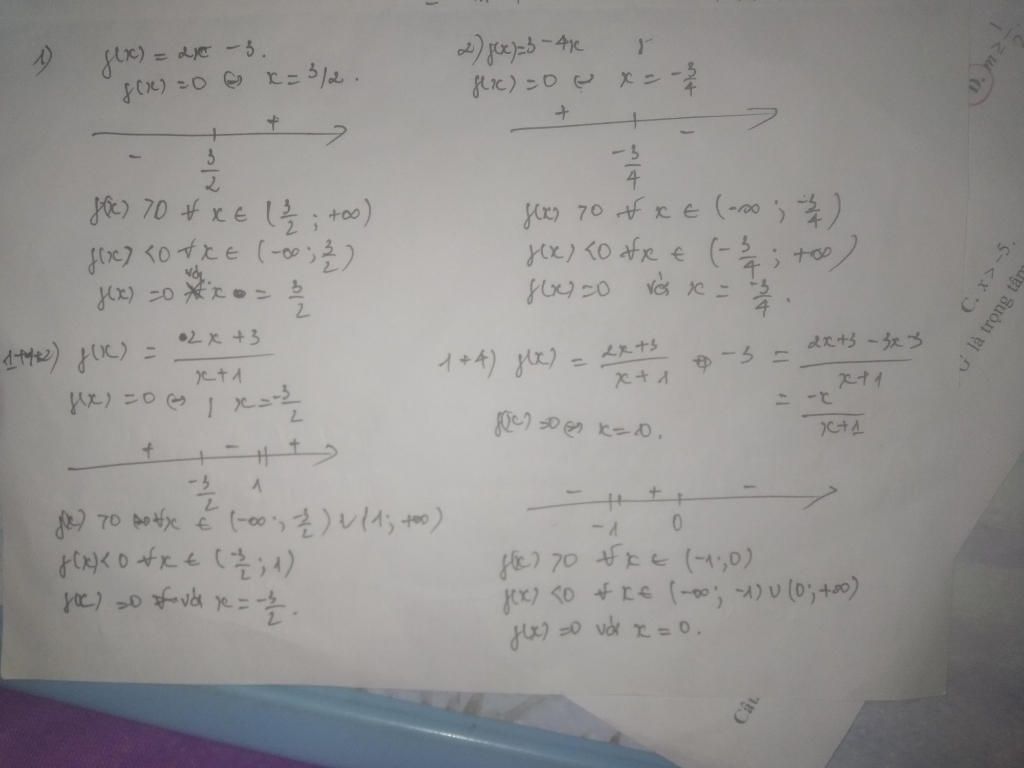 1) f(x) = 2x - 3.
f(x) = 0 ⇔ x = 3/2.
+
-
3/2
f(x) > 0 ∀ x ∈ (3/2; +∞)
f(x) < 0 ∀ x ∈ (-∞; 3/2)
f(x) = 0 với x = 3/2
2) f(x) = 3 - 4x
f(x) = 0 ⇔ x = -3/4
+
-
-3/4
f(x) > 0 ∀ x ∈ (-∞; -3/4)
f(x) < 0 ∀ x ∈ (-3/4; +∞)
f(x) = 0 với x = -3/4.
f(x) = (2x + 3)/(x + 1)
f(x) = 0 ⇔ x = -3/2
+ - +
-3/2 1
f(x) > 0 ∀ x ∈ (-∞; -3/2) ∪ (1; +∞)
f(x) < 0 ∀ x ∈ (-3/2; 1)
f(x) = 0 với x = -3/2.
1+4) f(x) = (2x+3)/(x+1) - 3 = (2x+3 - 3x - 3)/(x+1)
= -x/(x+1)
f(x) = 0 ⇔ x = 0.
- + -
-1 0
f(x) > 0 ∀ x ∈ (-1; 0)
f(x) < 0 ∀ x ∈ (-∞; -1) ∪ (0; +∞)
f(x) = 0 với x = 0.
D. m ≥ 1/2
C. x > -5.
là trọng tâm
Câu